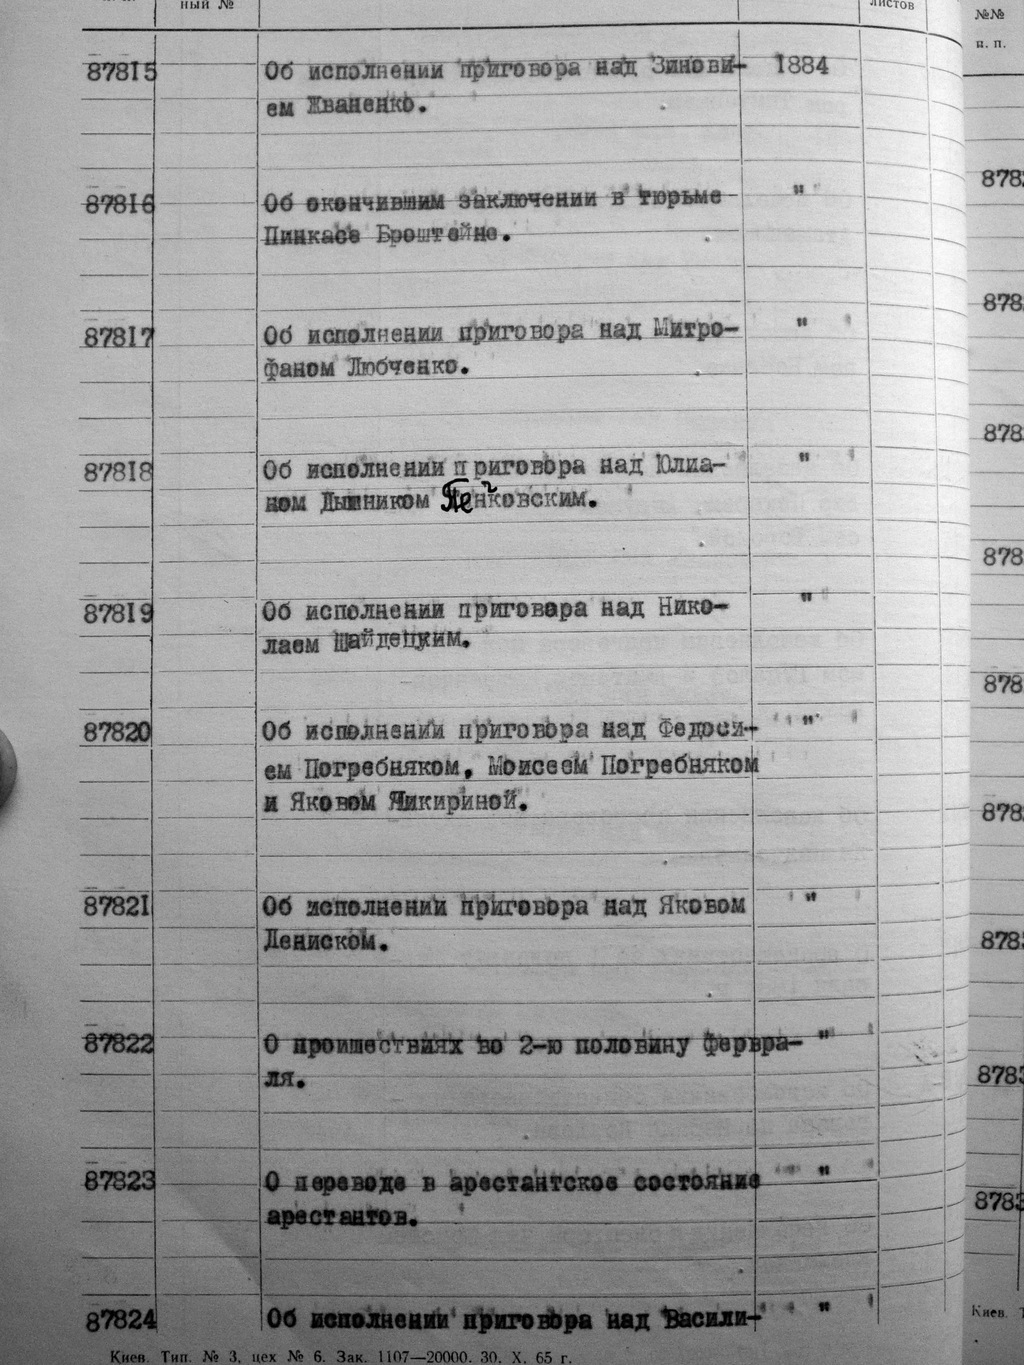 ный №
листов
№№
п. п.
87815 Об исполнении приговора над Зинови- 1884
ем Жваненко.
87816 Об окончившим заключении в тюрьме "
Пинкасе Броштейне.
87817 Об исполнении приговора над Митро- "
фаном Любченко.
87818 Об исполнении приговора над Юлиа- "
ном Дышником Пеньковским.
87819 Об исполнении приговора над Нико- "
лаем Шайдецким.
87820 Об исполнении приговора над Федоси- "
ем Погребняком, Моисеем Погребняком
и Яковом Чикириной.
87821 Об исполнении приговора над Яковом "
Дениском.
87822 О проишествиях во 2-ю половину фервра- "
ля.
87823 О переводе в арестантское состояние "
арестантов.
87824 Об исполнении приговора над Васили- "
Киев. Тип. № 3, цех № 6. Зак. 1107—20000. 30. X. 65 г.
Киев.